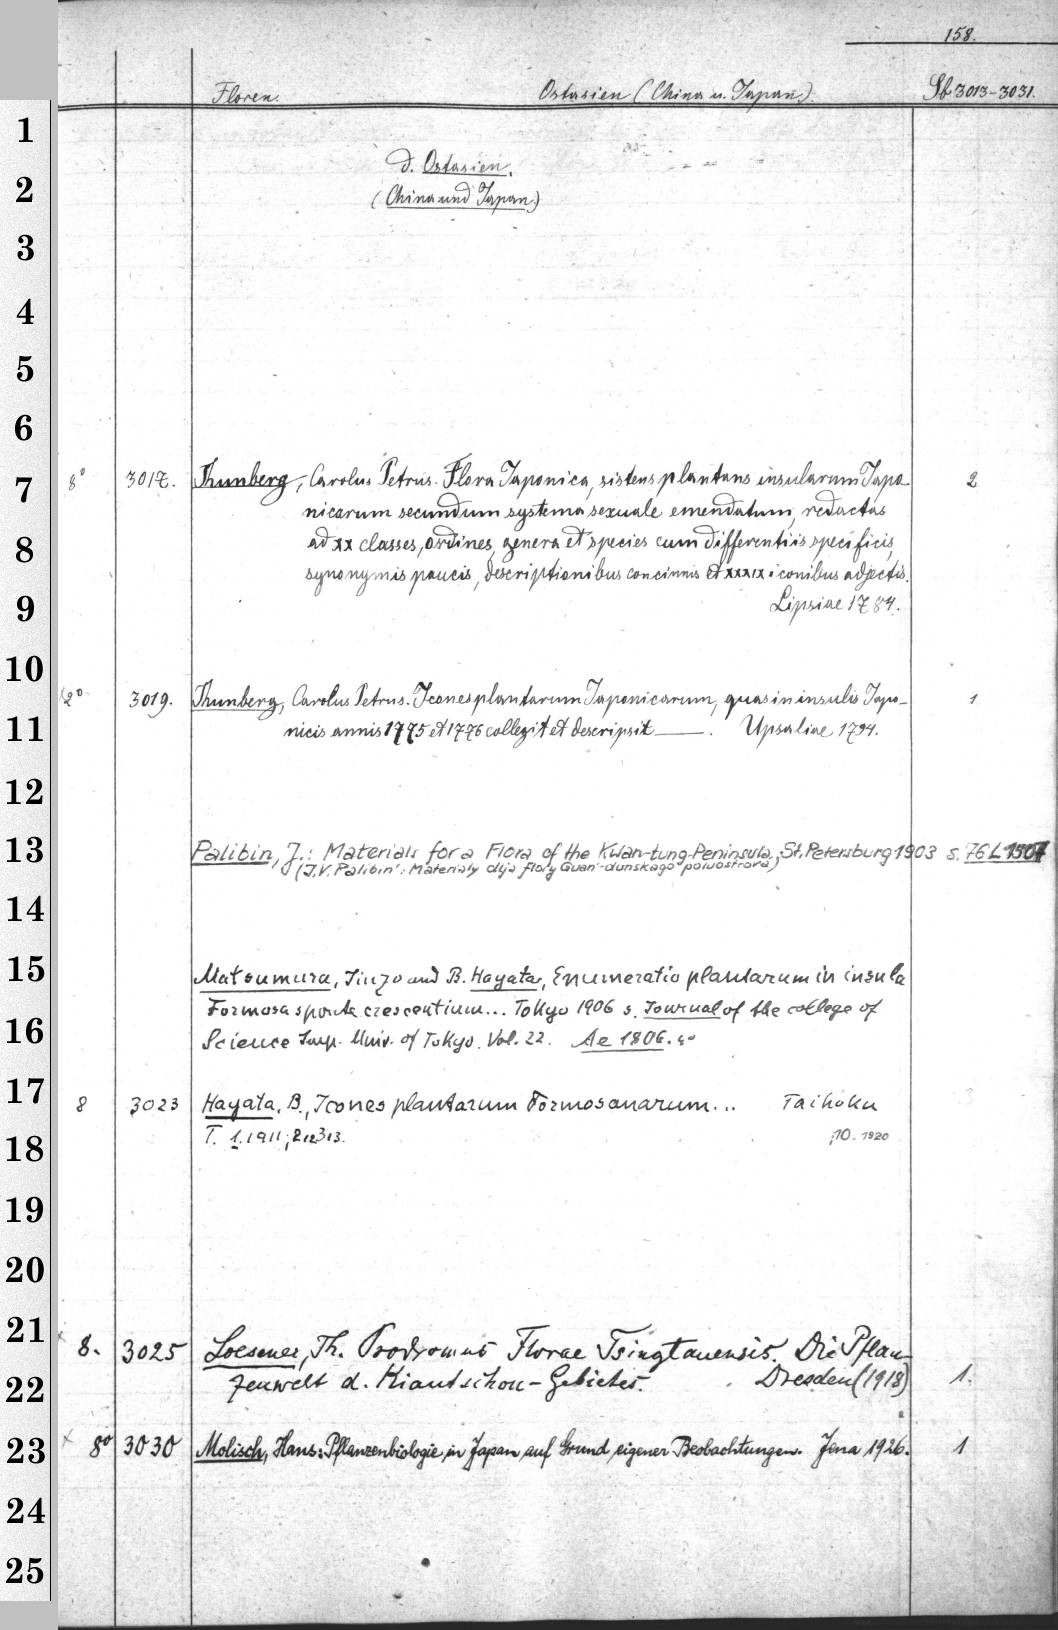 158.
Floren. Ostasien (China u. Japan.) Sb 3013-3031.
1
d. Ostasien.
2
(China und Japan.)
3
4
5
6
7 8° 3017. Thunberg, Carolus Petrus. Flora Japonica, sistens plantans insularum Japo- 2
nicarum secundum systema sexuale emendatum, redactas
8 ad XX classes, ordines, genera et species cum differentiis specificis,
synonymis paucis, descriptionibus concinnis et XXXIX iconibus adjectis.
9 Lipsiae 1784.
10
2° 3019. Thunberg, Carolus Petrus. Icones plantarum Japonicarum, quas in insulis Japo- 1
11 nicis annis 1775 et 1776 collegit et descripsit ——. Upsaliae 1794.
12
13 Palibin, J.: Materials for a Flora of the Kwan-tung-Peninsula, St. Petersburg 1903 s. 76 L 1507
(J.V. Palibin': Materialy dlja flory Guan'-dunskago poluostrova)
14
15 Matsumura, Jinzo and B. Hayata, Enumeratio plantarum in insula
Formosa sponte crescentium... Tokyo 1906 s. Journal of the college of
16 Science Imp. Univ. of Tokyo. Vol. 22. Ae 1806. 4°
17 8 3023 Hayata, B., Icones plantarum Formosanarum... Taihoku
18 T. 1. 1911; 2 12 3 13. ;10. 1920
19
20
21 8. 3025 Loesener, Th. Prodromus Florae Tsingtauensis. Die Pflan-
22 zenwelt d. Kiautschou-Gebietes. Dresden (1918) 1.
23 8° 3030 Molisch, Hans: Pflanzenbiologie in Japan auf Grund eigener Beobachtungen. Jena 1926. 1
24
25